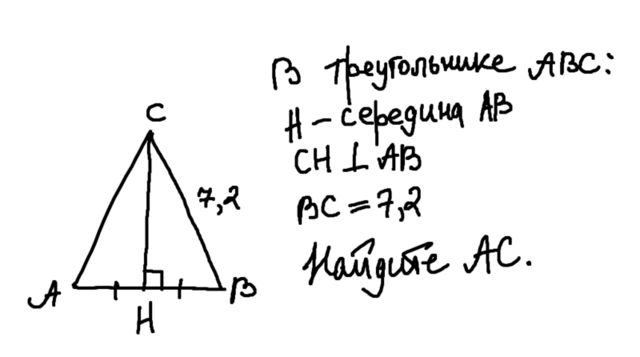 В треугольнике ABC:
H – середина AB
CH ⊥ AB
BC = 7,2
Найдите AC.
C
7,2
A
B
H